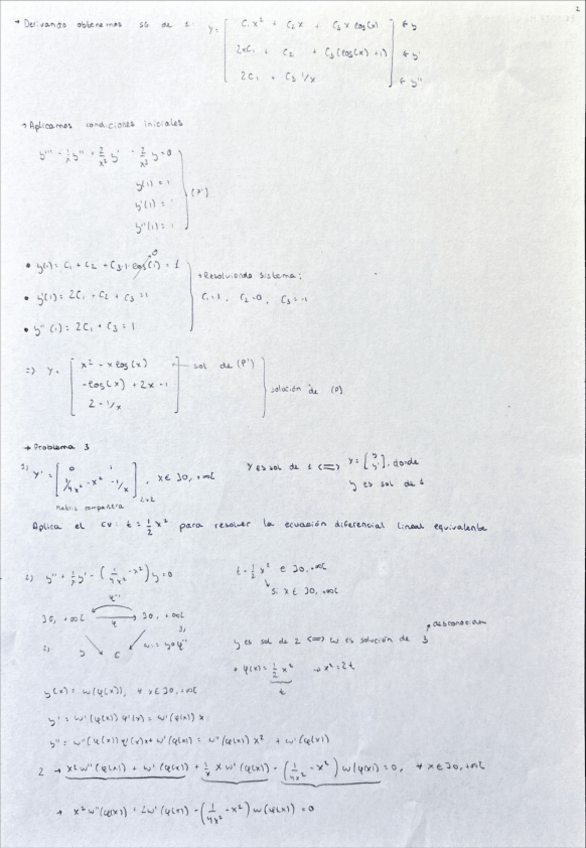 2
→ Derivando obtenemos SG de 1: y = [ C₁x² + C₂x + C₃x log(x) ] ← y
2xC₁ + C₂ + C₃(log(x)+1) ← y'
2C₁ + C₃ 1/x ← y''
→ Aplicamos condiciones iniciales
y''' - 1/x y'' + 2/x² y' - 2/x³ y = 0
y(1) = 1
y'(1) = 1 (P')
y''(1) = 1
• y(1) = C₁ + C₂ + C₃·1·log(1) = 1 0
→ Resolviendo sistema:
• y'(1) = 2C₁ + C₂ + C₃ = 1
C₁=1, C₂=0, C₃=-1
• y''(1) = 2C₁ + C₃ = 1
=> Y = [ x² - x log(x) ] sol de (P')
-log(x) + 2x - 1 solución de (P)
2 - 1/x
→ Problema 3
1) Y' = [ 0 1 / 1/4x² - x² -1/x ], x ∈ ]0, +∞[ Y es sol de 1 <=> Y = [ y / y' ], donde
y es sol de
Matriz compañera
Aplica el CV: t = 1/2 x² para resolver la ecuación diferencial lineal equivalente
2) y'' + 1/x y' - (1/4x² - x²) y = 0 t = 1/2 x² ∈ ]0, +∞[
si x ∈ ]0, +∞[
φ⁻¹
]0, +∞[ φ ]0, +∞[
2) y ℂ w = y∘φ⁻¹ 3)
y es sol de 2 <=> w es solución de 3 → desconocida
• φ(x) = 1/2 x² x² = 2t
t
y(x) = w(φ(x)), ∀ x ∈ ]0, +∞[
y' = w'(φ(x)) φ'(x) = w'(φ(x)) x
y'' = w''(φ(x)) φ'(x) x + w'(φ(x)) = w''(φ(x)) x² + w'(φ(x))
2 → x² w''(φ(x)) + w'(φ(x)) + 1/x x w'(φ(x)) - (1/4x² - x²) w(φ(x)) = 0, ∀ x ∈ ]0, +∞[
→ x² w''(φ(x)) + 2w'(φ(x)) - (1/4x² - x²) w(φ(x)) = 0